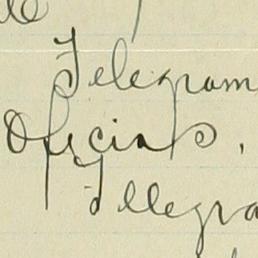 Telegram
Oficial.
Telegra